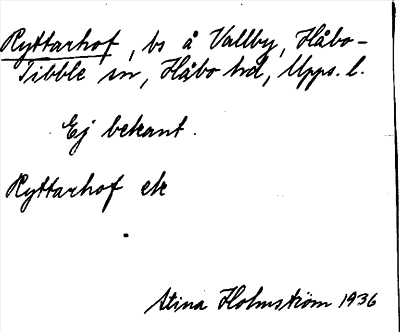 Ryttarhof, bs å Vallby, Håbo-
Tibble sn, Håbo hd, Upps. l.
Ej bekant.
Ryttarhof etc
Stina Holmström 1936